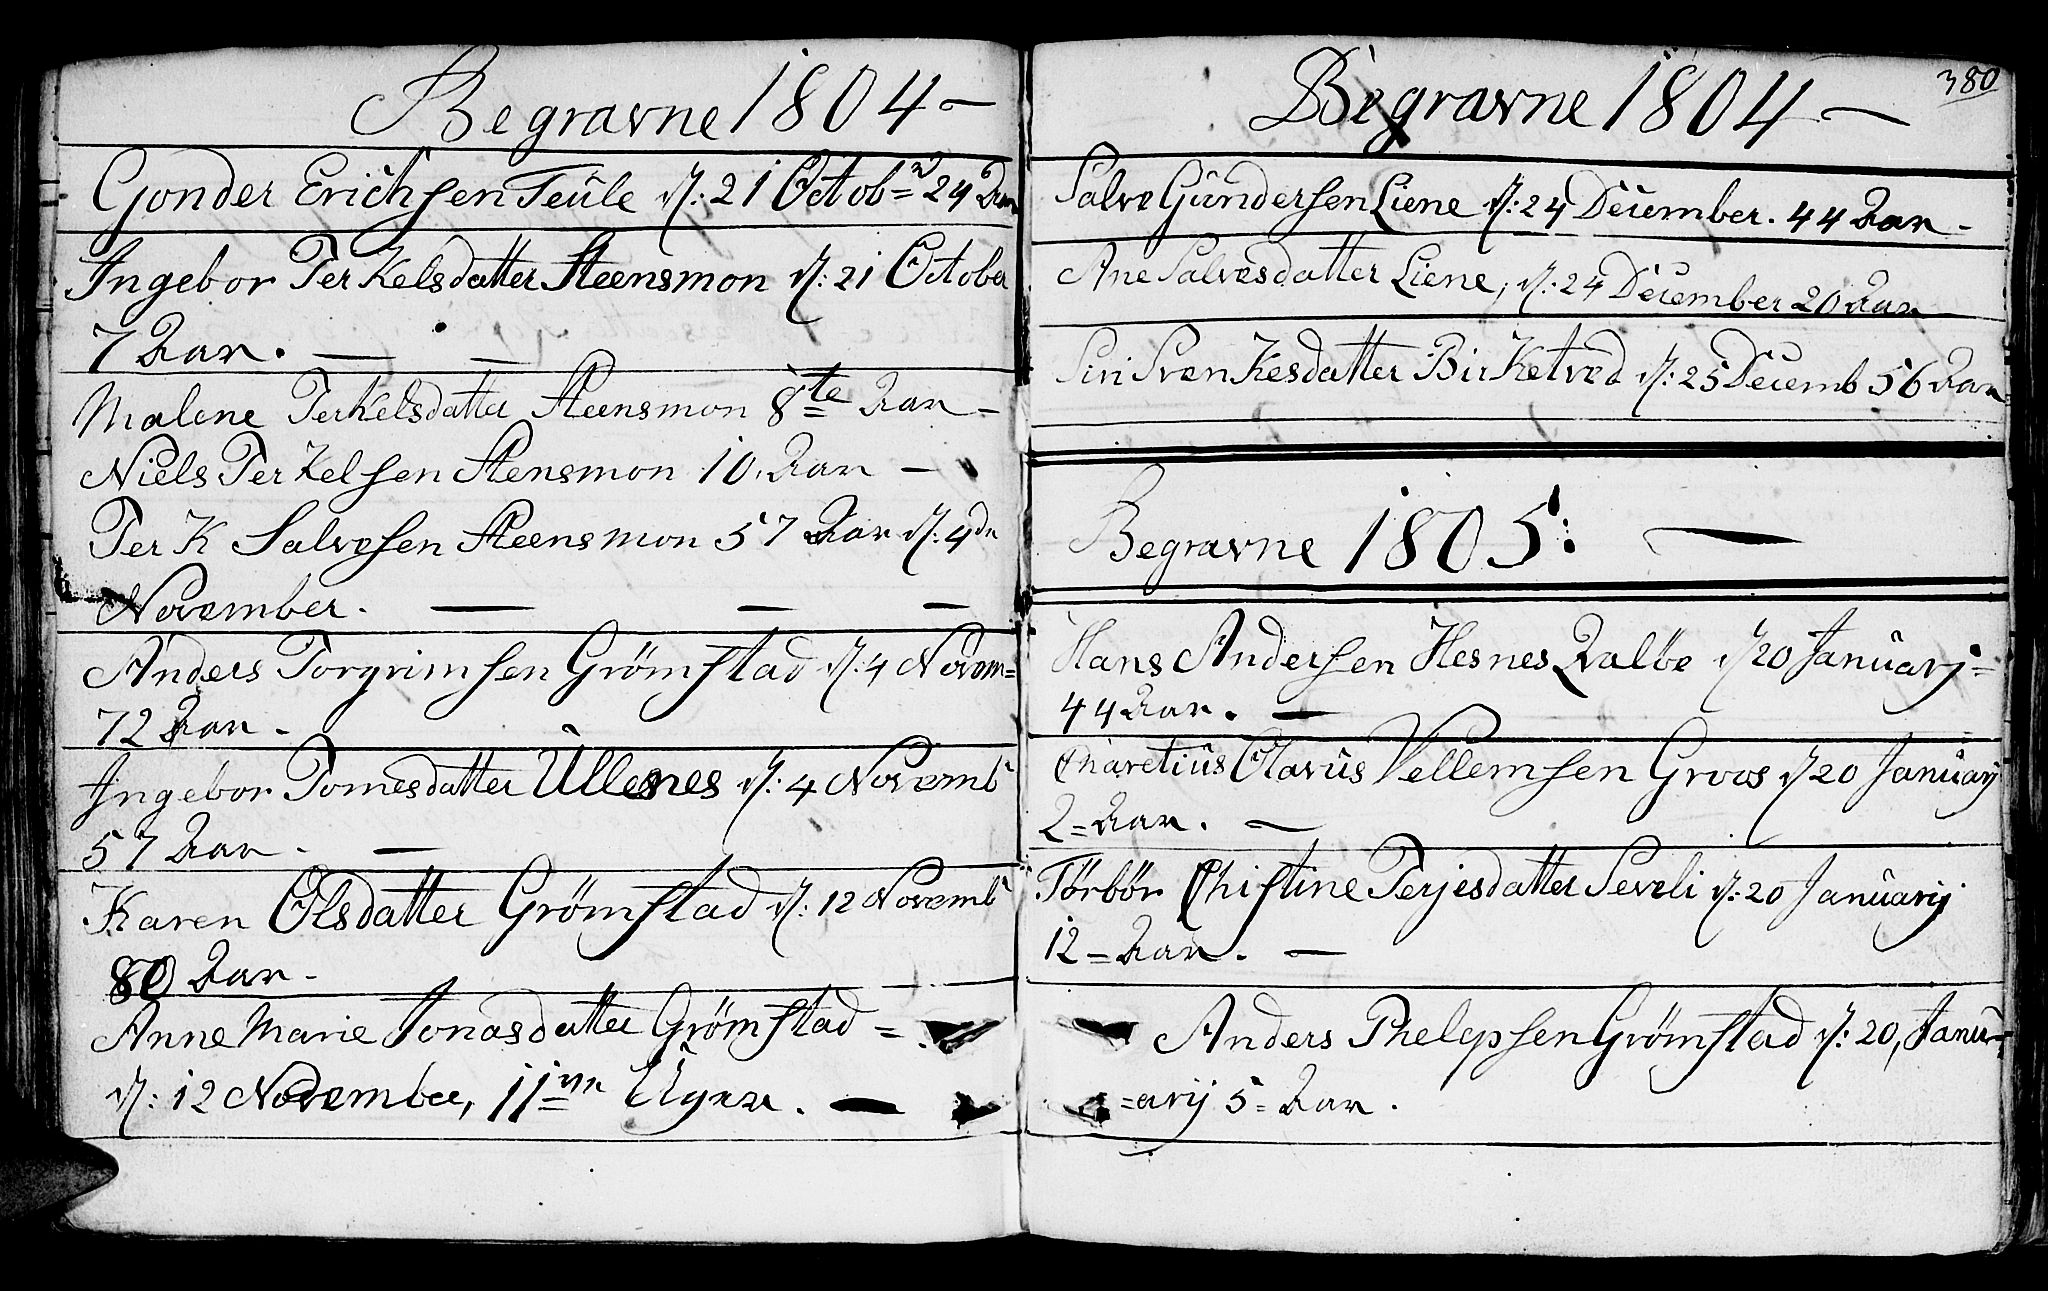 Begravne 1804 –
Gonder Erichsen Teüle d: 21 Octob= 24 Aar
Ingebor Terkelsdatter Steensmon d: 21 October
7 Aar. — —
Malene Terkelsdatter Steensmon 8te Aar –
Niels Terkelsen Stensmon 10. Aar –
Terk Salvesen Steensmon 57 Aar d: 4de
November. — — —
Anders Torgrimsen Grømstad d: 4 Novem=
72 Aar –
Ingebor Tomesdatter Ullenes d: 4 Novemb
57 Aar – —
Karen Olsdatter Grømstad d: 12 Novemb
80 Aar –
Anne Marie Jonasdatter Grømstad =
d: 12 November, 11 Uger. —
380
Begravne 1804 —
Salve Gündersen Liene d: 24 December. 44 Aar –
Ane Salvesdatter Liene, d: 24 December 20 Aar
Siri Svenkesdatter Birketved d: 25 Decemb 56 Aar
Begravne 1805: —
Hans Andersen Hesnes d 20 Janüarj=
44 Aar. —
Olavüs Vellemsen Groos d 20 Janüarij
2= Aar. —
Tørbør Chistine Terjesdatter Seveli d: 20 Janüarij
12= Aar. —
Anders Phelepsen Grømstad d: 20, Janü=
=arij 5= Aar.